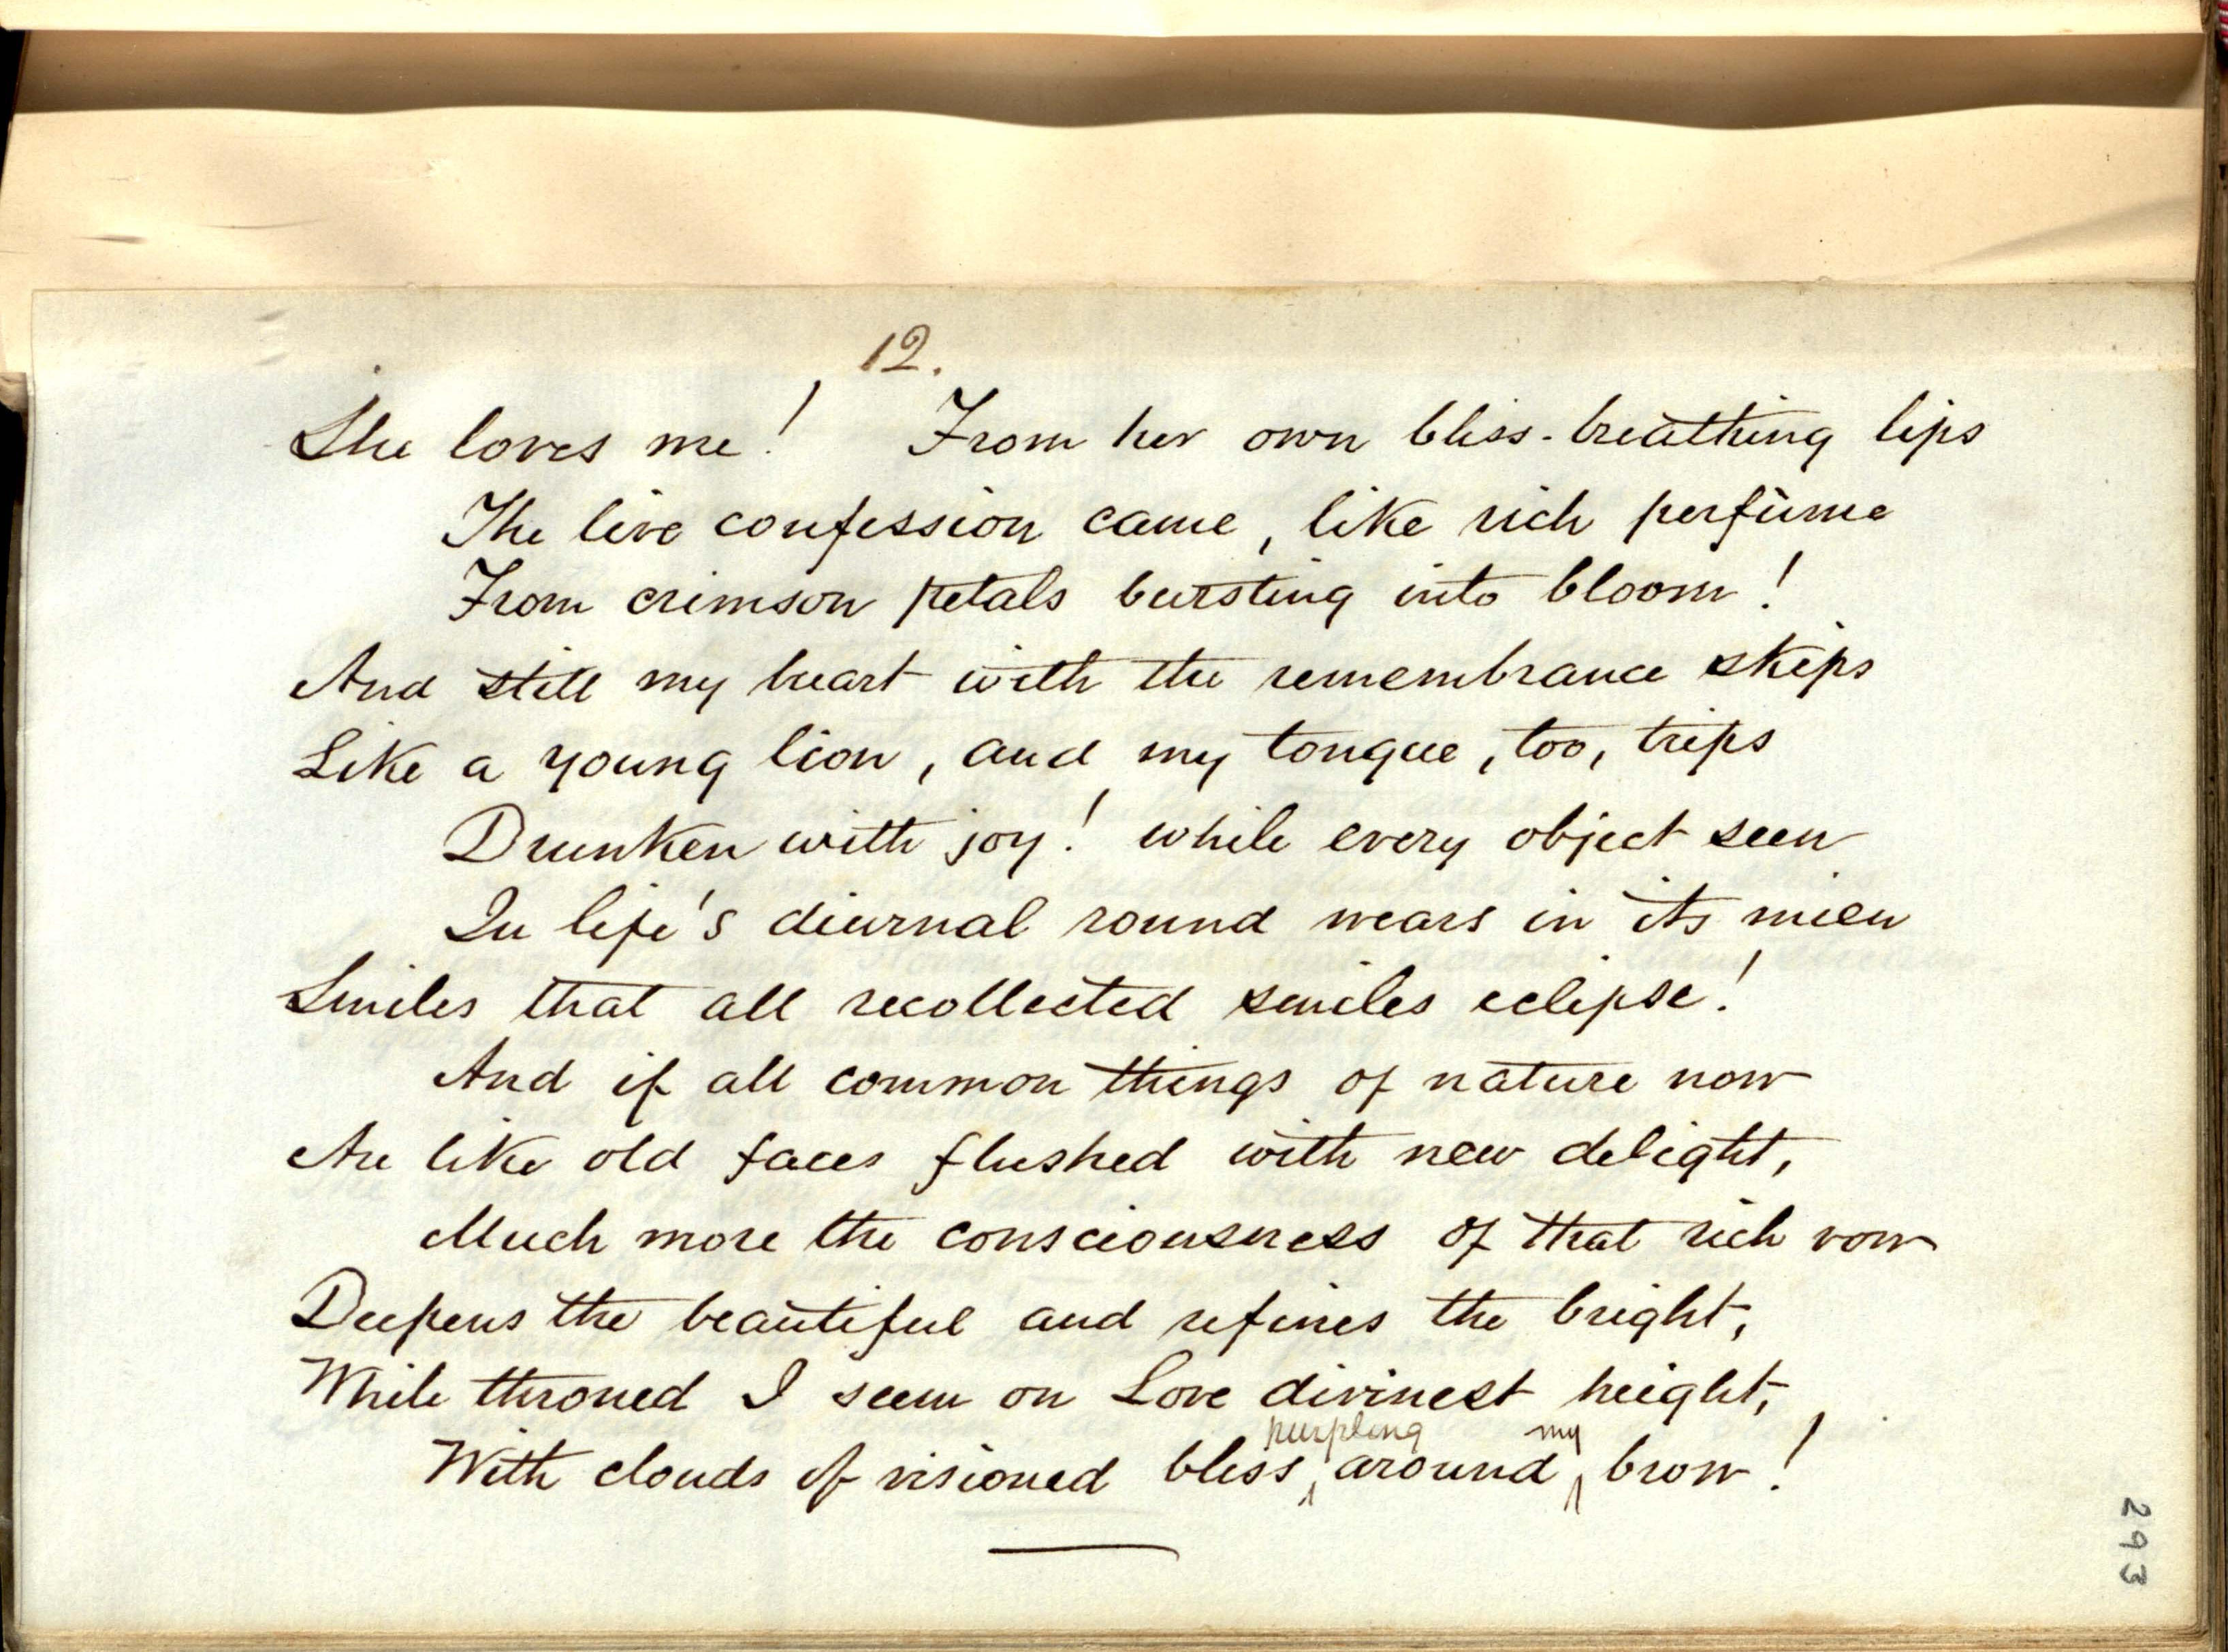 12.
She loves me! From her own bliss-breathing lips
The live confession came, like rich perfume
From crimson petals bursting into bloom!
And still my heart with the remembrance skips
Like a young lion, and my tongue, too, trips
Drunken with joy! while every object seen
In life's diurnal round wears in its mien
Smiles that all recollected smiles eclipse!
And if all common things of nature now
Are like old faces flushed with new delight,
Much more the consciousness of that rich vow
Deepens the beautiful and refines the bright,
While throned I seem on Love divinest height,
purpling my
With clouds of visioned bliss, around brow!
293